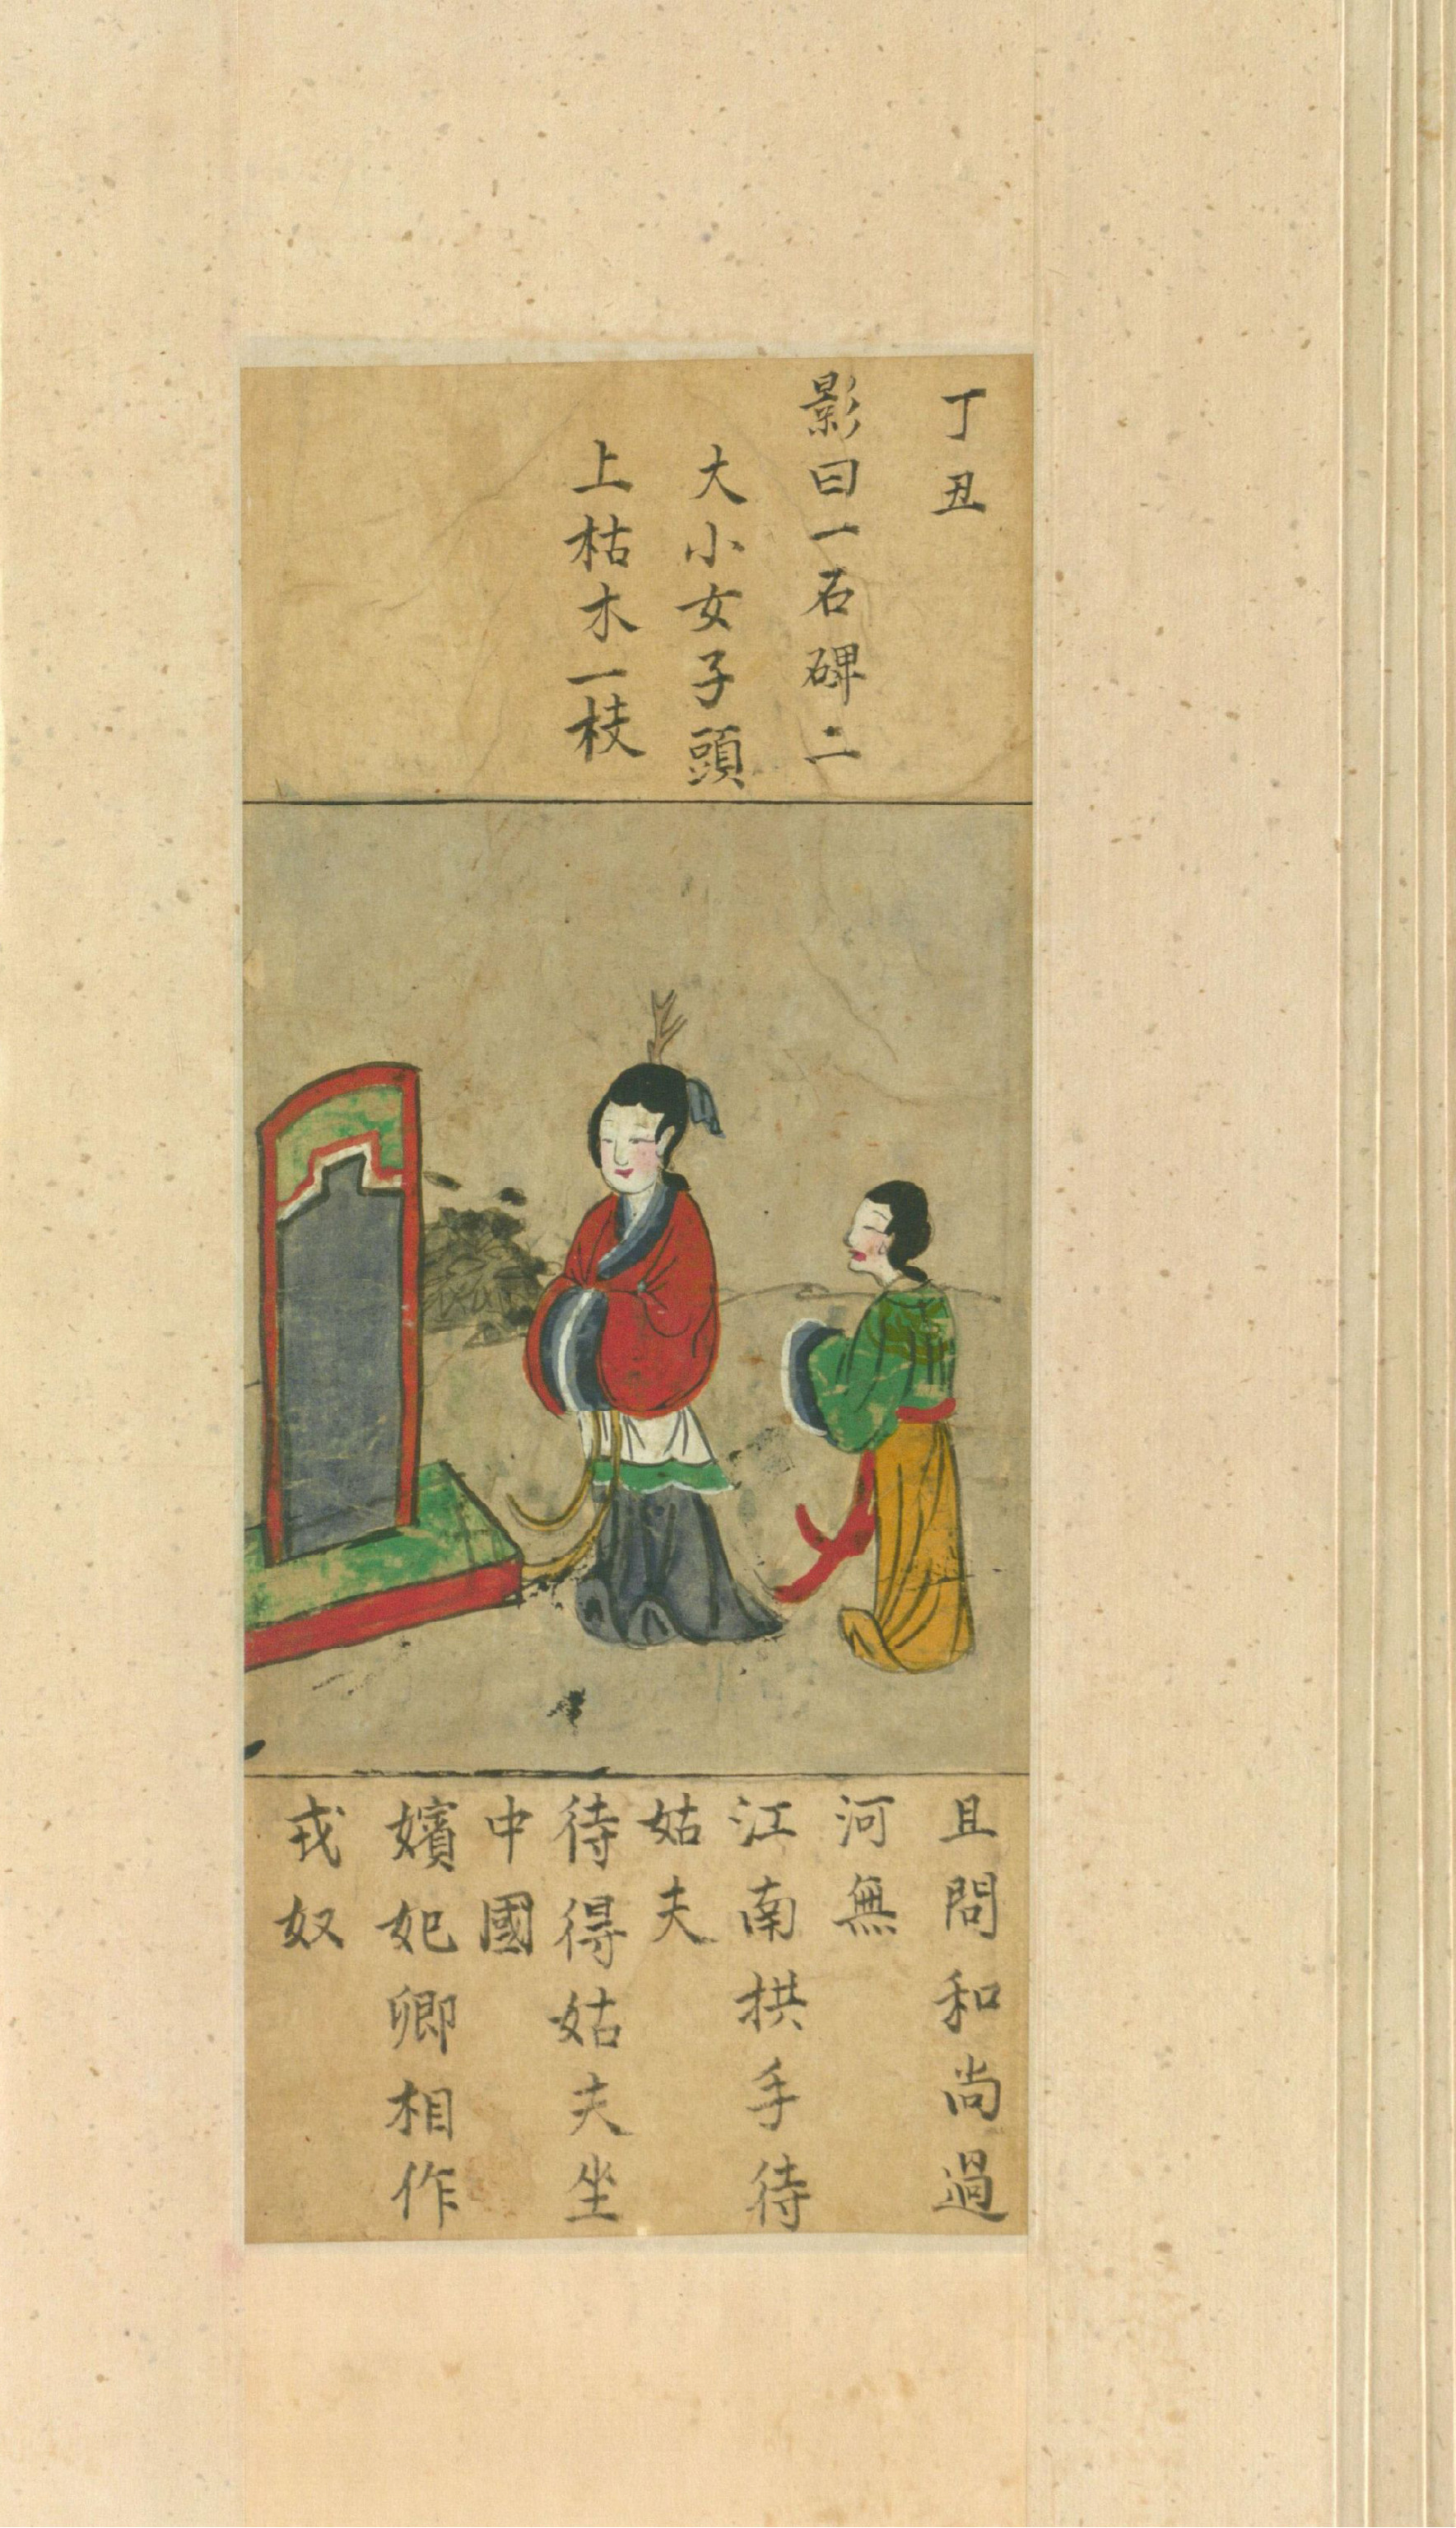 丁丑
影曰一石碑二
大小女子頭
上枯木一枝
且問和尚過
河無
江南拱手待
姑夫
待得姑夫坐
中國
嬪妃卿相作
戎奴